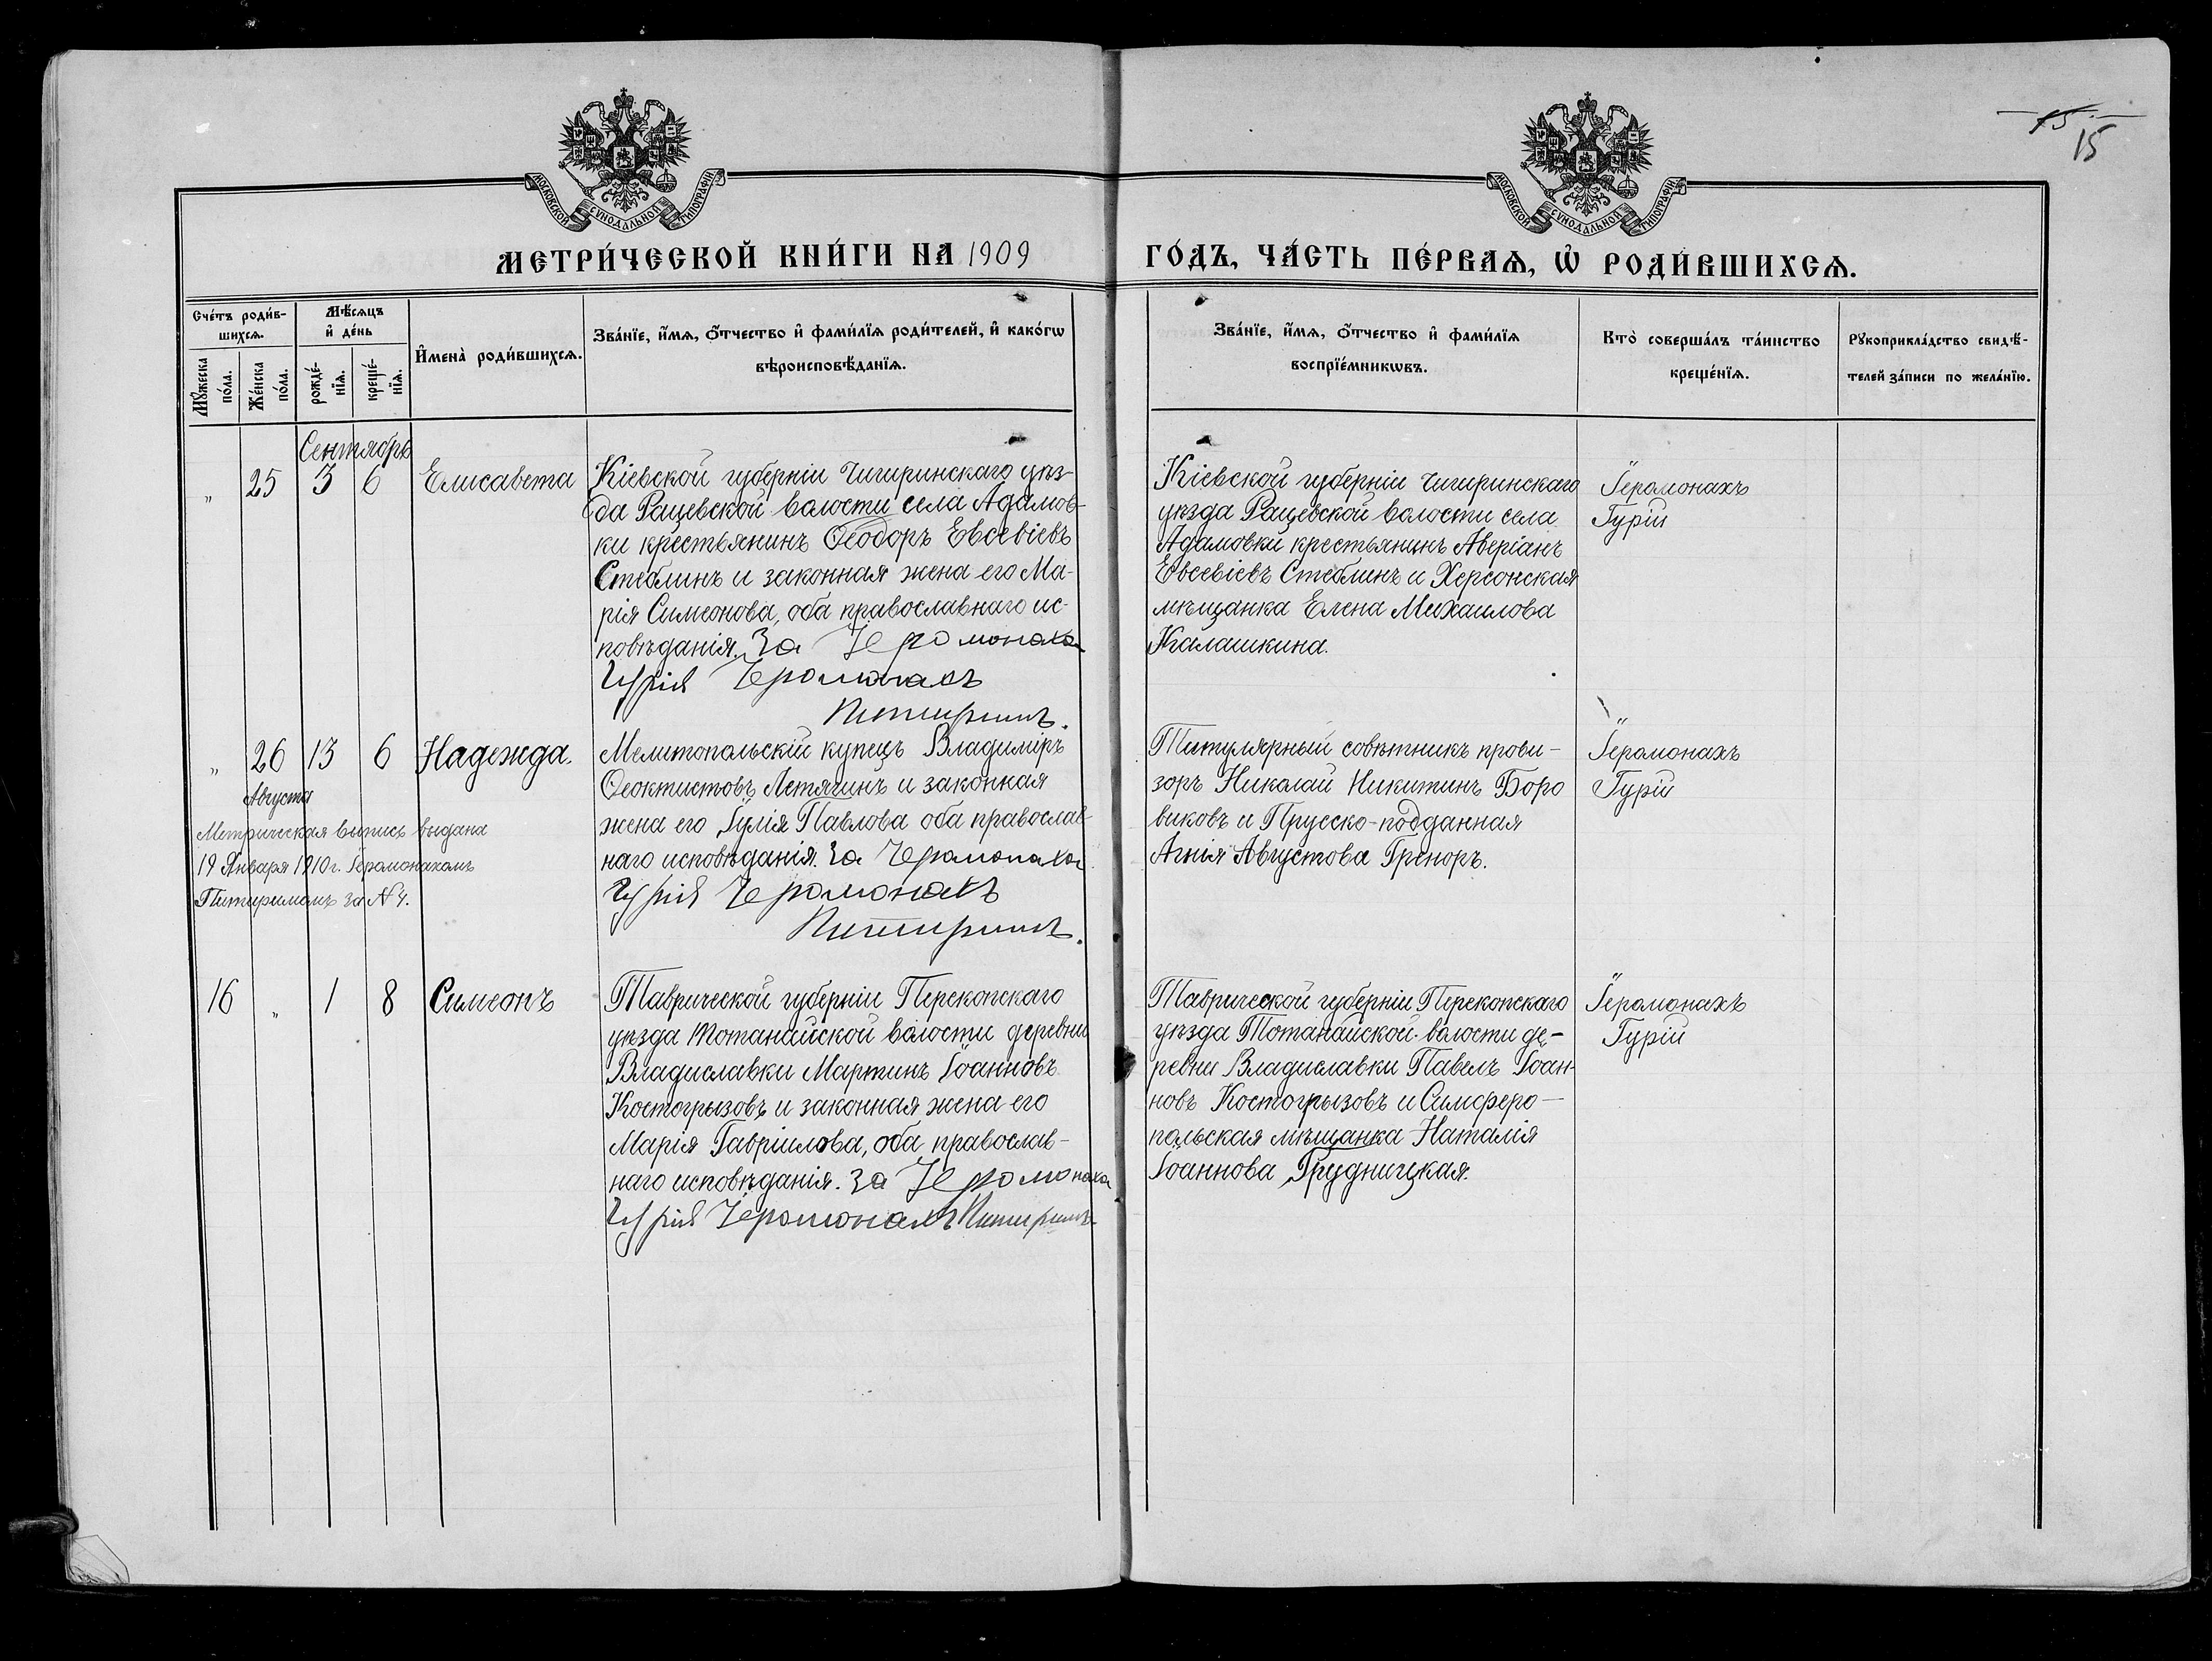 15
15
МОСКОВСКОЙ СѴНОДАЛЬНОЙ ТИПОГРАФІИ
МОСКОВСКОЙ СѴНОДАЛЬНОЙ ТИПОГРАФІИ
МЕТРИ́ЧЕСКОЙ КНИ́ГИ НА 1909
ГО́ДЪ, ЧА́СТЬ ПЕ́РВАѦ, Ѡ҆ РОДИ́ВШИХСѦ.
Сче́тъ роди́в-
шихсѧ.
Мꙋ́жеска по́ла.
Же́нска по́ла.
Мѣ́сѧцъ
и҆ де́нь
рожде́-
нїѧ.
креще́-
нїѧ.
И҆мена̀ роди́вшихсѧ.
Зва́нїе, и҆́мѧ, ѻ҆́тчество и҆ фами́лїѧ роди́телей, и҆ како́гѡ
вѣроисповѣ́данїѧ.
Зва́нїе, и҆́мѧ, ѻ҆́тчество и҆ фами́лїѧ
воспрїе́мникѡвъ.
Кто̀ соверша́лъ та́инство
креще́нїѧ.
Рꙋкоприкла́дство свидѣ́-
телей за́писи по жела́нїю.
Сентябрь
„ 25 3 6 Елисавета
Кіевской губерніи Чигиринскаго уѣз-
да Рацевской волости села Адамов-
ки крестьянинъ Ѳеодоръ Евсевіевъ
Стеблинъ и законная жена его Ма-
рія Симеонова, оба православнаго ис-
повѣданія. За Іеромонаха
Гурія Іеромонахъ
Питиримъ.
Кіевской губерніи Чигиринскаго
уѣзда Рацевской волости села
Адамовки крестьянинъ Аверіанъ
Евсевіевъ Стеблинъ и Херсонская
мѣщанка Елена Михаилова
Калашкина.
Іеромонахъ
Гурій
„ 26 13 6 Надежда.
Августа
Метрическая выпись выдана
19 Января 1910 г. Іеромонахомъ
Питиримомъ за № 4.
Мелитопольскій купецъ Владиміръ
Ѳеоктистовъ Летягинъ и законная
жена его Іулія Павлова оба православ-
наго исповѣданія. За Іеромонаха
Гурія Іеромонахъ
Питиримъ.
Титулярный совѣтникъ прови-
зоръ Николай Никитинъ Боро
виковъ и Прусско-подданная
Агнія Августова Греноръ.
Іеромонахъ
Гурій
16 „ 1 8 Симеонъ
Таврической губерніи Перекопскаго
уѣзда Тотанайской волости деревни
Владиславки Мартинъ Іоанновъ
Костогрызовъ и законная жена его
Марія Гавріилова, оба православ-
наго исповѣданія. За Іеромонаха
Гурія Іеромонахъ Питиримъ.
Таврической губерніи Перекопскаго
уѣзда Тотанайской волости де-
ревни Владиславки Павелъ Іоан-
новъ Костогрызовъ и Симферо-
польская мѣщанка Наталія
Іоаннова Грудницкая.
Іеромонахъ
Гурій